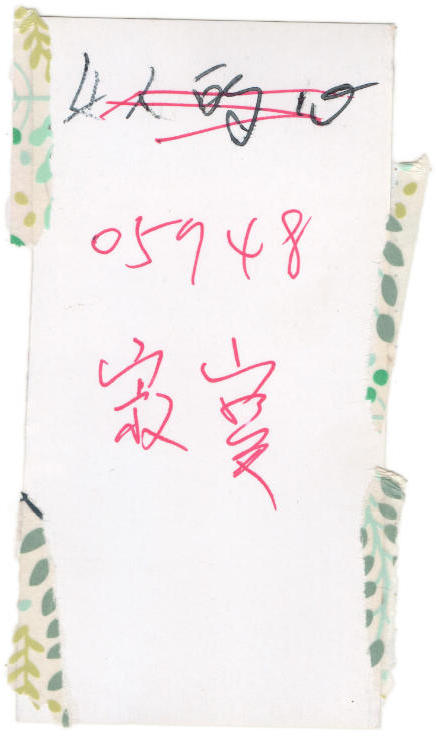 女人的心
05948
寂寞